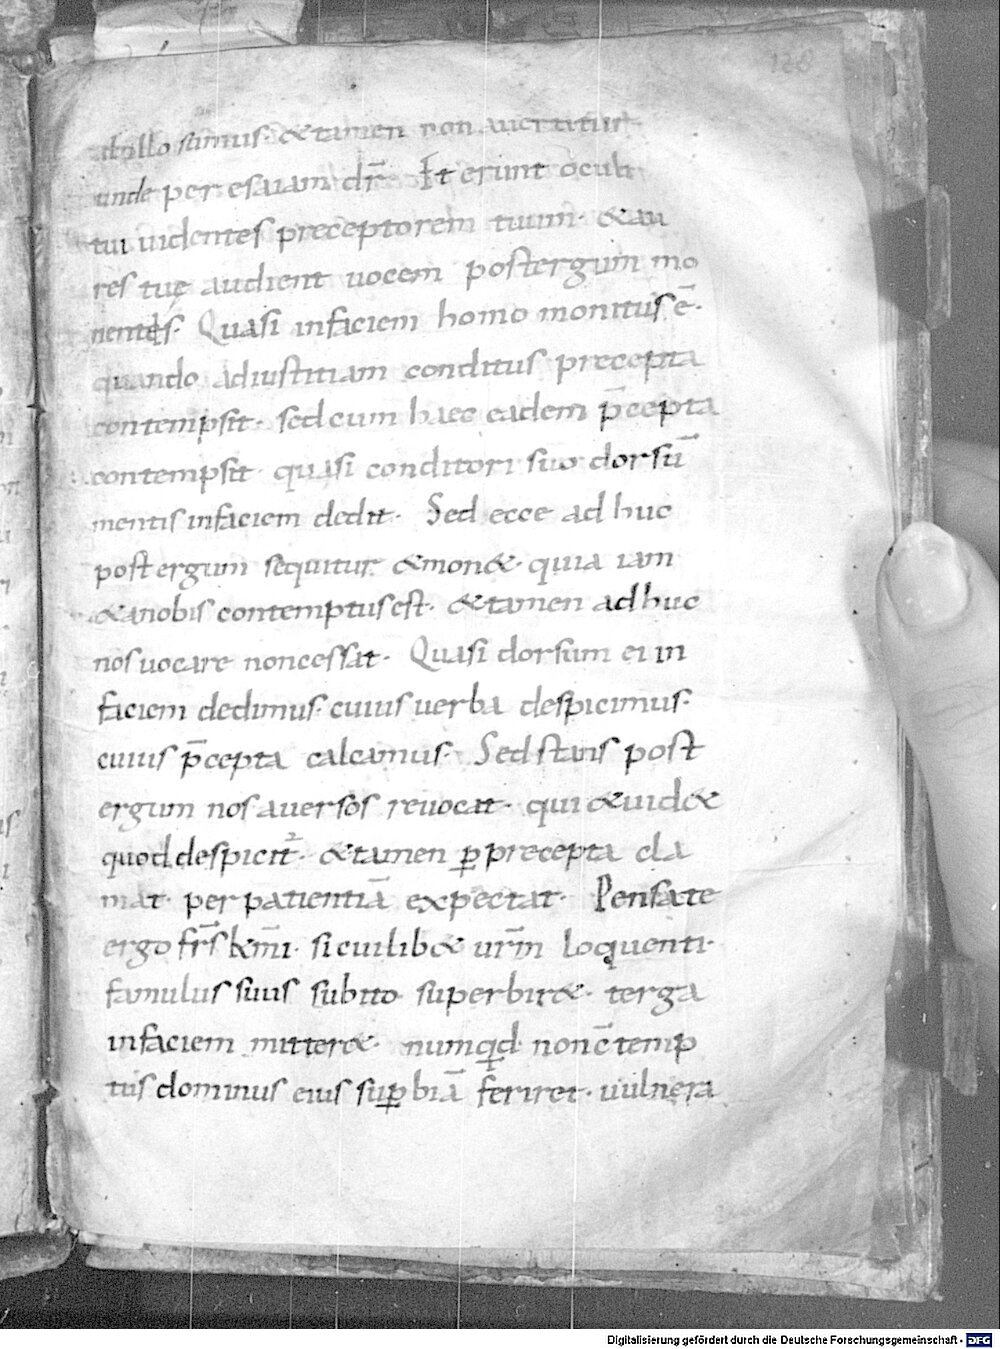 ab illo sumus· & tamen non auertitur·
unde per esaiam dr̄ Et erunt oculi
tui uidentes preceptorem tuum· & au
res tuę audient uocem post ergum mo
nentis· Quasi infaciem homo monitus ē·
quando adiustitiam conditus precepta
contempsit· sed cum haec eadem p̄cepta
contempsit quasi conditori suo dorsū
mentis infaciem dedit· Sed ecce ad huc
post ergum sequitur & mon&· quia iam
& anobis contemptus est· & tamen ad huc
nos uocare non cessat· Quasi dorsum ei in
faciem dedimus· cuius uerba despicimus·
cuius p̄cepta calcamus· Sed stans post
ergum nos auersos reuocat· qui & uid&
quod despicit· & tamen ꝑ precepta cla
mat· per patientiā expectat· Pensate
ergo fr̄s km̄i· si cuilib& ur̄m loquenti·
famulus suus subito superbir&· terga
infaciem mitter&· numqd non c̄temp
tus dominus eius suꝑbiā feriret· uulnera
120
Digitalisierung gefördert durch die Deutsche Forschungsgemeinschaft - DFG